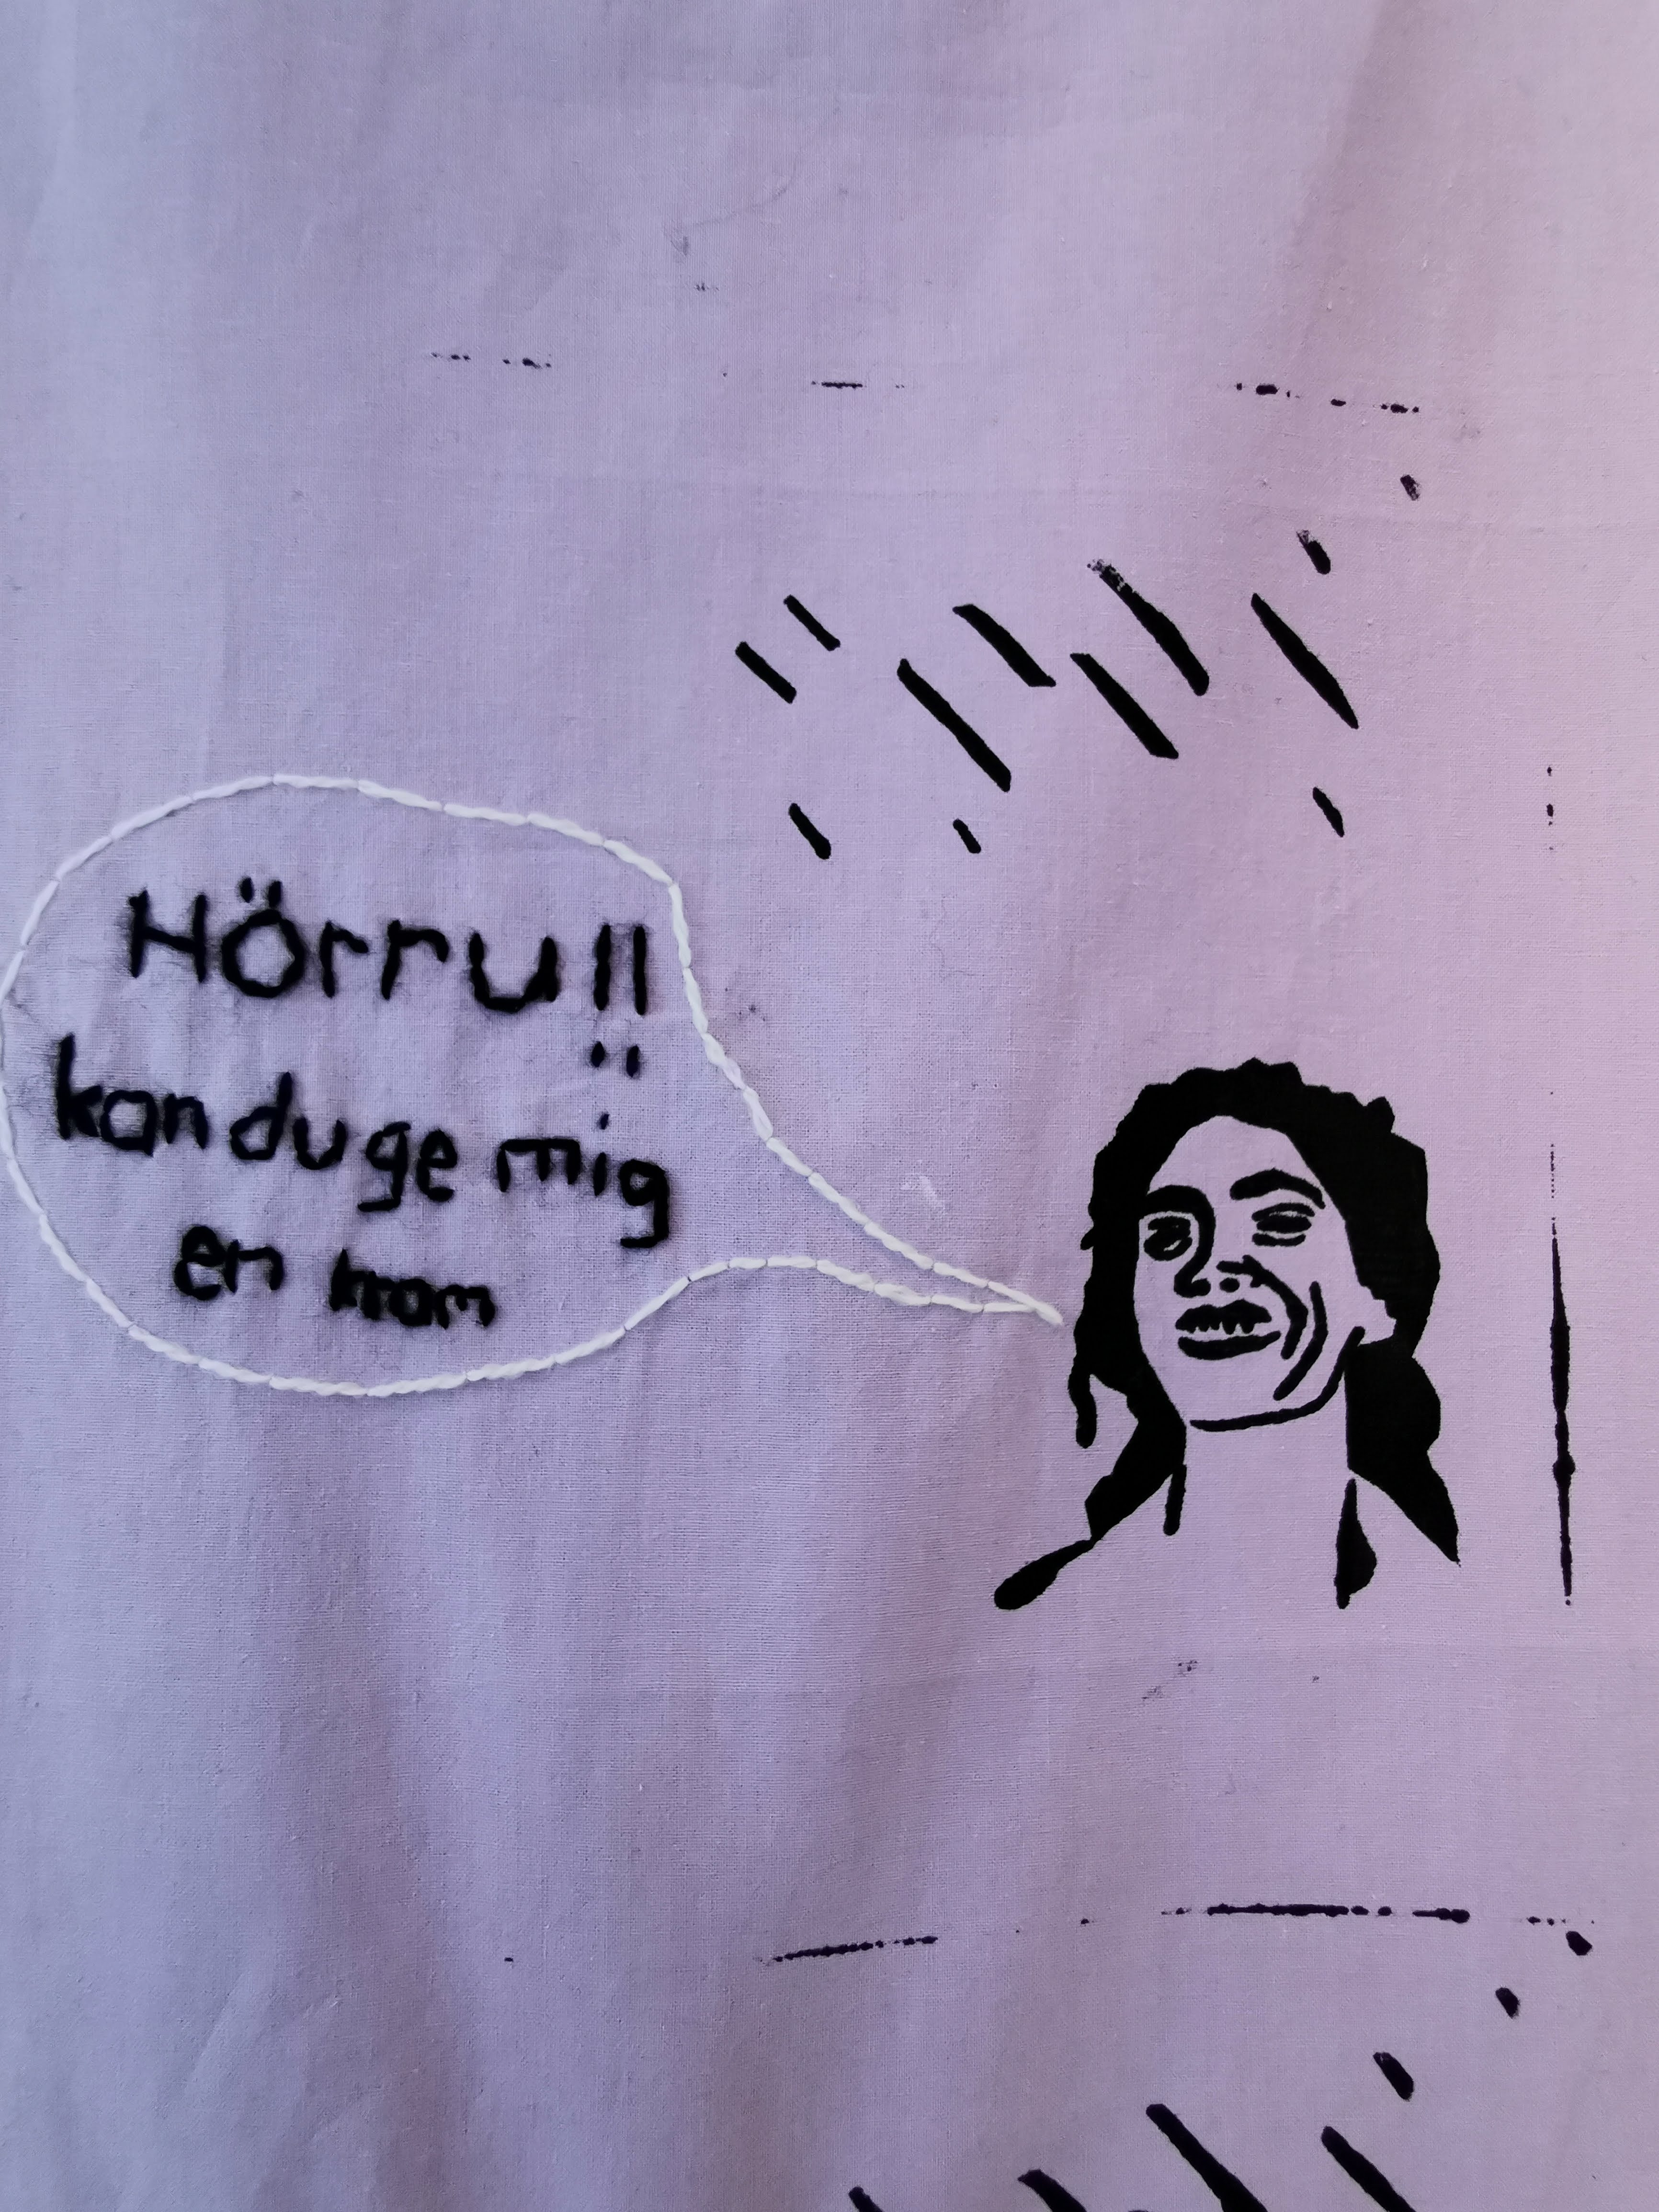 Hörru!!
kan du ge mig
en kram